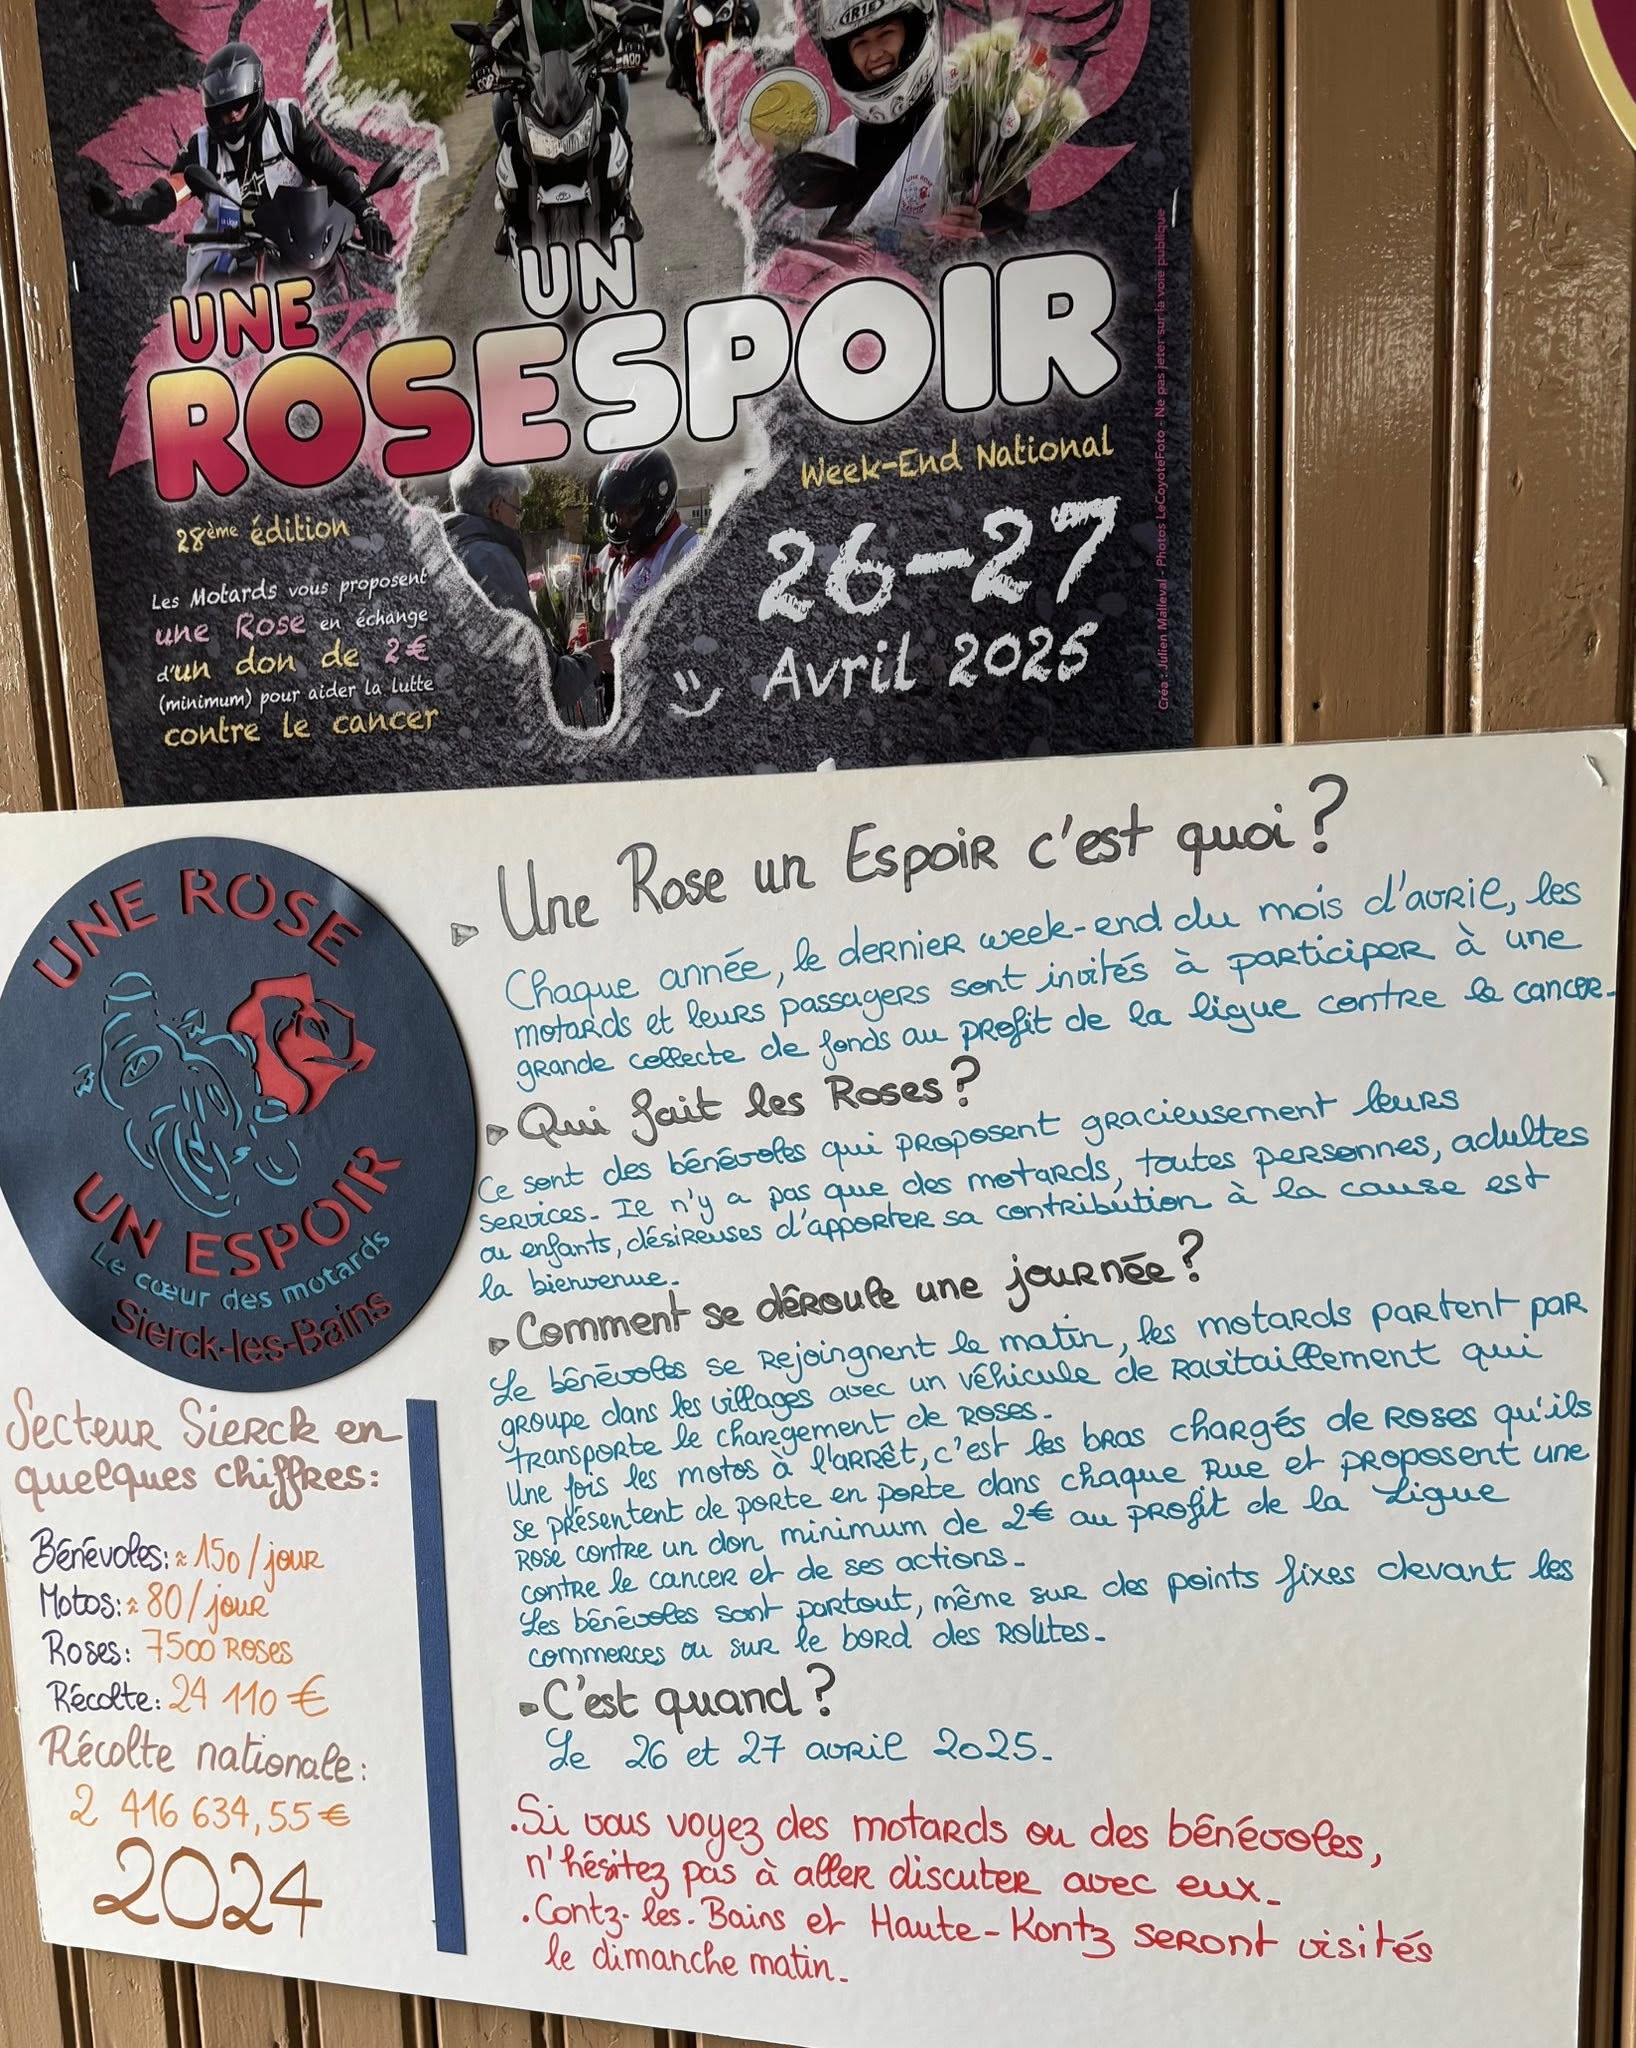 UNE
UN
ROSESPOIR
Week-End National
28ème édition
26-27
Avril 2025
Les Motards vous proposent
une Rose en échange
d'un don de 2€
(minimum) pour aider la lutte
contre le cancer
Créa : Julien Malleval - Photos LeCoyoteFoto - Ne pas jeter sur la voie publique
UNE ROSE
UN ESPOIR
Le cœur des motards
Sierck-les-Bains
Secteur Sierck en
quelques chiffres:
Bénévoles: ≈ 150/jour
Motos: ≈ 80/jour
Roses: 7500 roses
Récolte: 24 110 €
Récolte nationale:
2 416 634,55 €
2024
Une Rose un Espoir c'est quoi?
Chaque année, le dernier week-end du mois d'avril, les
motards et leurs passagers sont invités à participer à une
grande collecte de fonds au profit de la ligue contre le cancer.
Qui fait les Roses?
Ce sont des bénévoles qui proposent gracieusement leurs
services. Il n'y a pas que des motards, toutes personnes, adultes
ou enfants, désireuses d'apporter sa contribution à la cause est
la bienvenue.
Comment se déroule une journée?
Le bénévoles se rejoingnent le matin, les motards partent par
groupe dans les villages avec un véhicule de ravitaillement qui
transporte le chargement de roses.
Une fois les motos à l'arrêt, c'est les bras chargés de roses qu'ils
se présentent de porte en porte dans chaque rue et proposent une
rose contre un don minimum de 2€ au profit de la Ligue
contre le cancer et de ses actions.
Les bénévoles sont partout, même sur des points fixes devant les
commerces ou sur le bord des routes.
C'est quand?
Le 26 et 27 avril 2025.
.Si vous voyez des motards ou des bénévoles,
n'hésitez pas à aller discuter avec eux.
.Contz-les-Bains et Haute-Kontz seront visités
le dimanche matin.